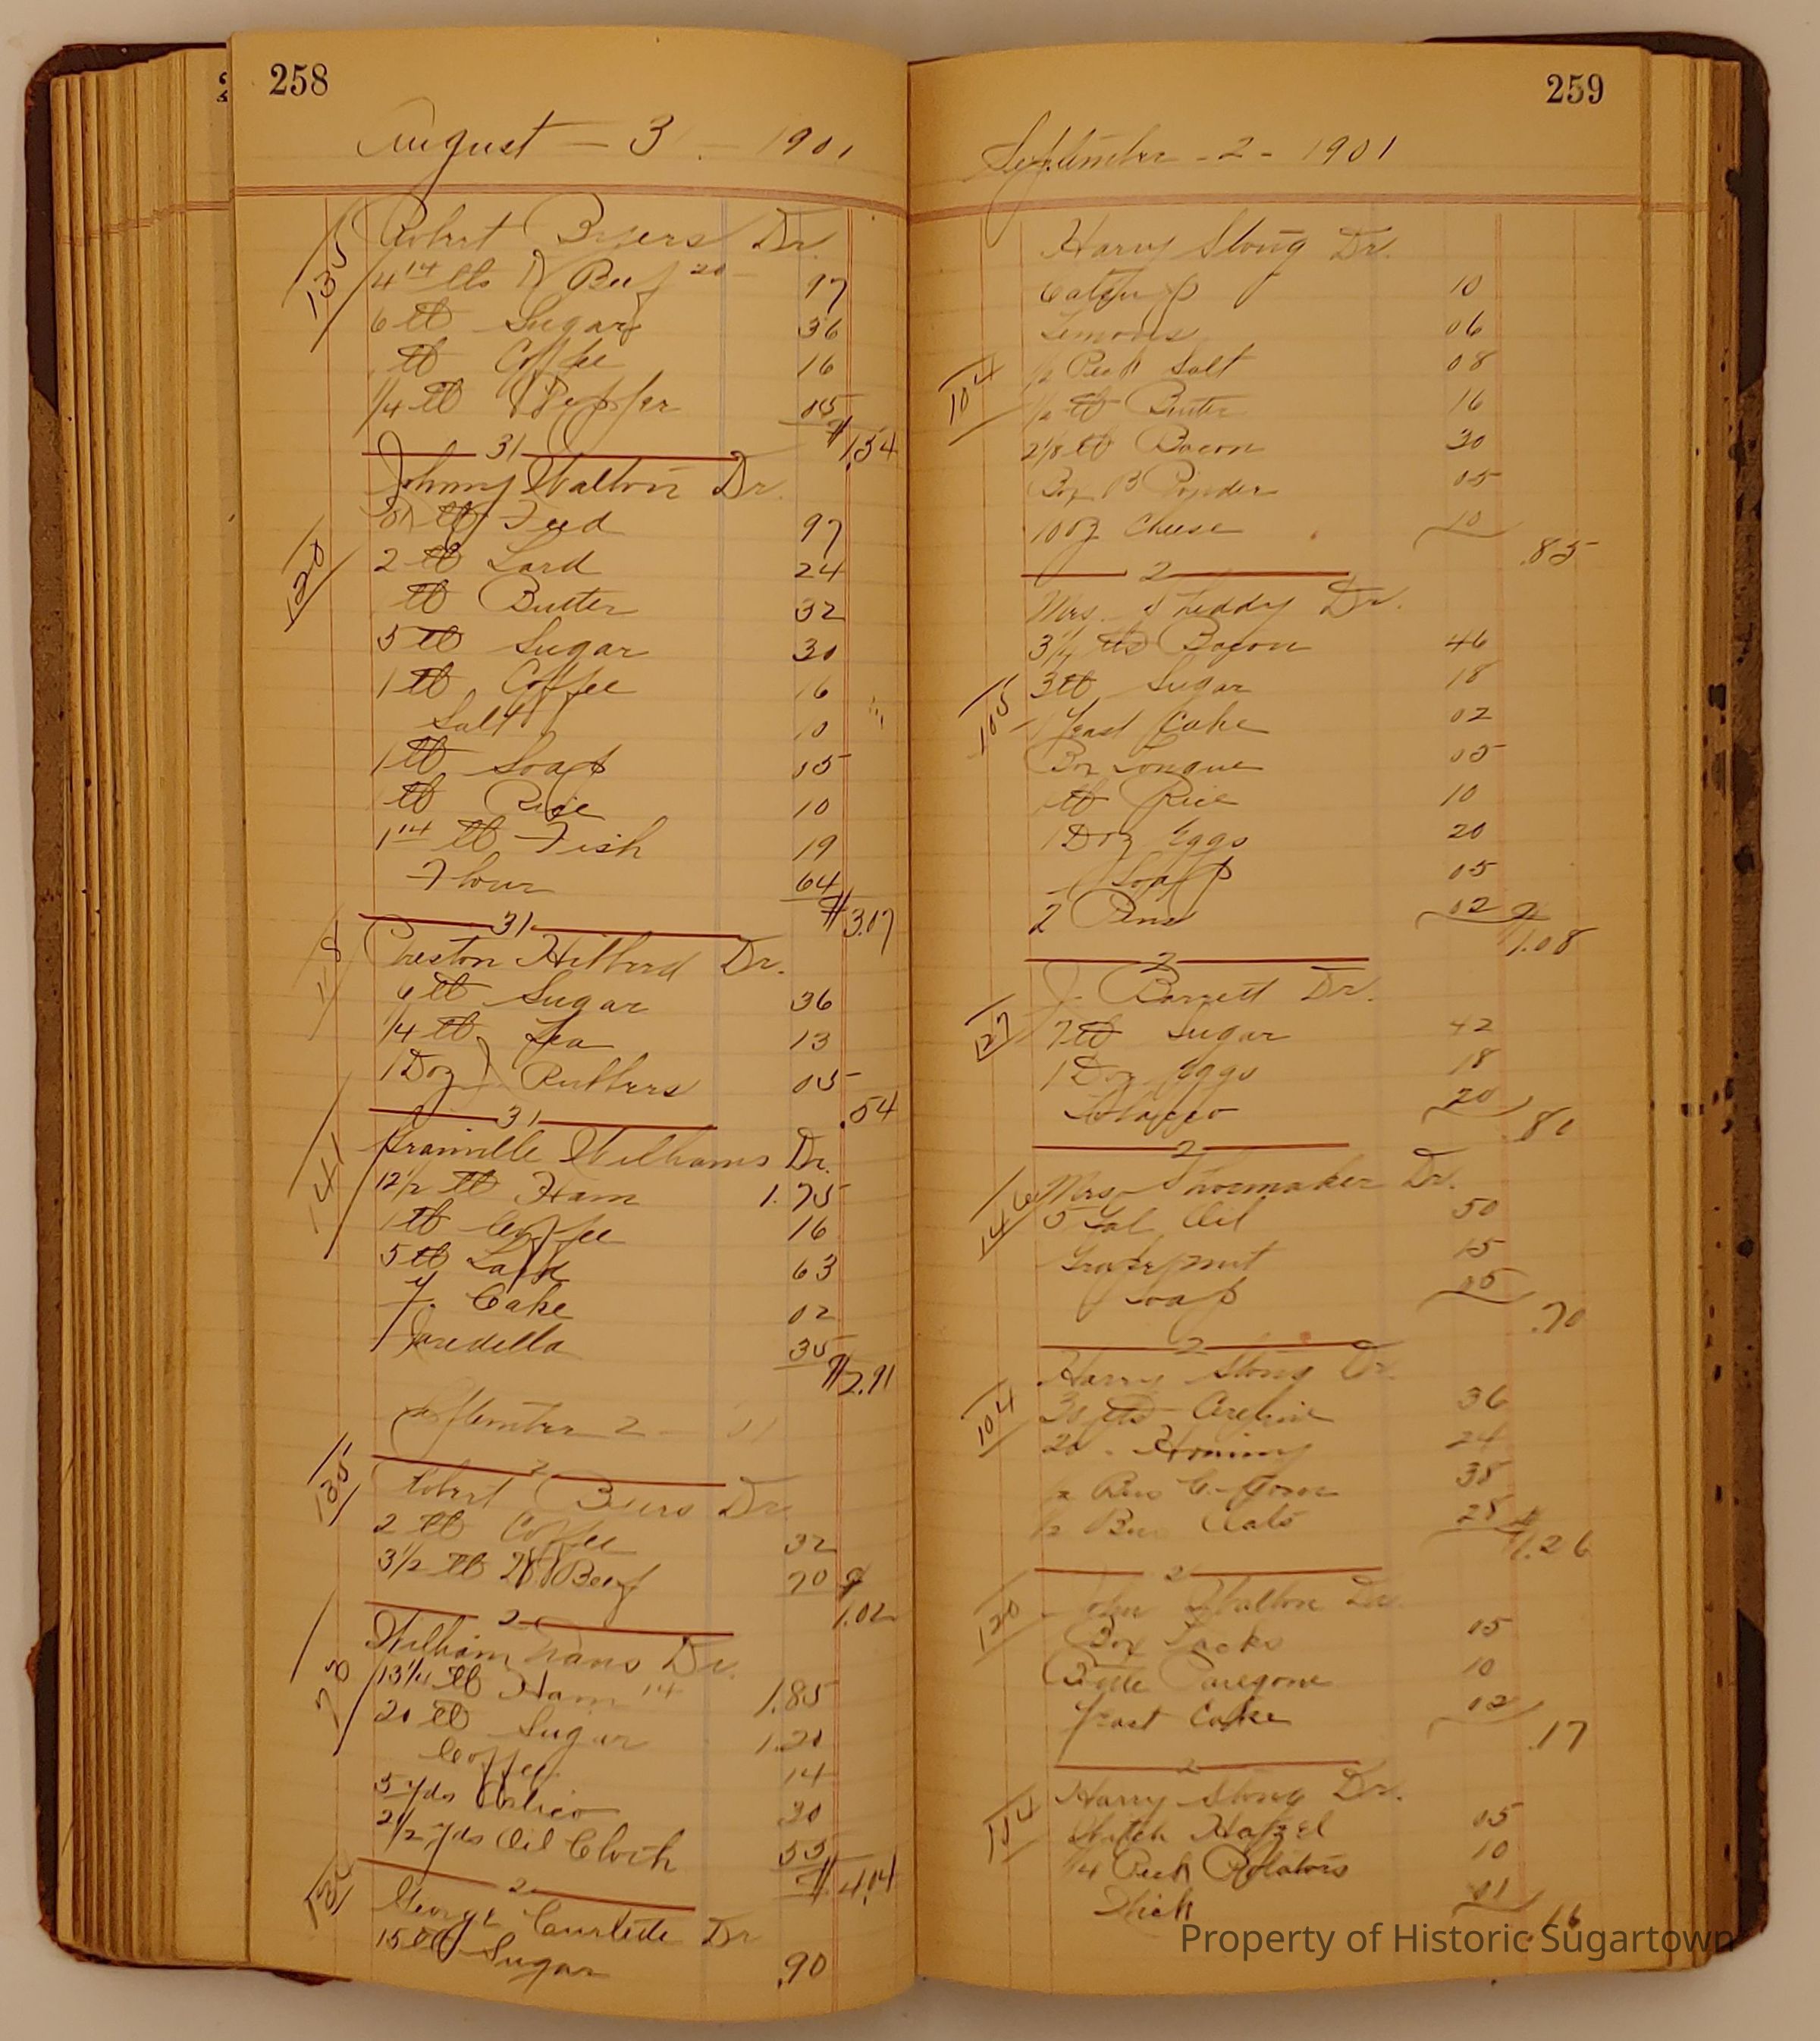 258
August - 31 - 1901
135
Robert Byers Dr.
4 14 lbs D Beef 20 97
6 lb Sugar 36
lb Coffee 16
1/4 lb Pepper 05
$1.54
31
Johnny Walton Dr.
120
lb Feed 97
2 lb Lard 24
lb Butter 32
5 lb Sugar 30
1 lb Coffee 16
Salt 10
1 lb Soap 05
lb Rice 10
1 14 lb Fish 19
Flour 64
$3.07
31
118
Preston Hibberd Dr.
6 lb Sugar 36
1/4 lb Tea 13
1 Doz J Rubbers 05
.54
31
141
Granville Williams Dr.
12 1/2 lb Ham 1.75
1 lb Coffee 16
5 lb Lard 63
Y. Cake 02
35
$2.91
September 2 - 01
2
135
Robert Byers Dr.
2 lb Coffee 32
3 1/2 lb D Beef 70
$1.02
2
William Evans Dr.
78
13 1/4 lb Ham 14 1.85
20 lb Sugar 1.20
Coffee 14
5 yds Calico 30
2 1/2 yds Oil Cloth 55
$4.04
2
George Dr
15 lb Sugar .90
259
September - 2 - 1901
Harry Stong Dr.
Catsup 10
Lemons 06
104
1/2 Peck Salt 08
1/2 lb Butter 16
2 1/8 lb Bacon 30
Box B Powder 05
10 oz Cheese 10
.85
2
Mrs. Dr.
3 1/4 lbs Bacon 46
105
3 lb Sugar 18
Yeast Cake 02
Box 05
1 lb Rice 10
1 Doz Eggs 20
Soap 05
2 Pens 02
$1.08
2
J. Barrett Dr.
127
7 lb Sugar 42
1 Doz Eggs 18
Tobacco 20
.80
2
146
Mrs. Shoemaker Dr.
5 Gal Oil 50
Grapenut 15
Soap 05
.70
2
Harry Stong Dr.
104
30 lbs 36
20 " Hominy 24
1/2 Bus C. Corn 38
1/2 Bus Oats 28
$1.26
2
120
John Walton Dr.
Box Tacks 05
Bottle Paregoric 10
Yeast Cake 02
.17
2
Harry Stong Dr.
104
Witch Hazel 05
1/4 Peck Potatoes 10
Wick 01
.16
Property of Historic Sugartown